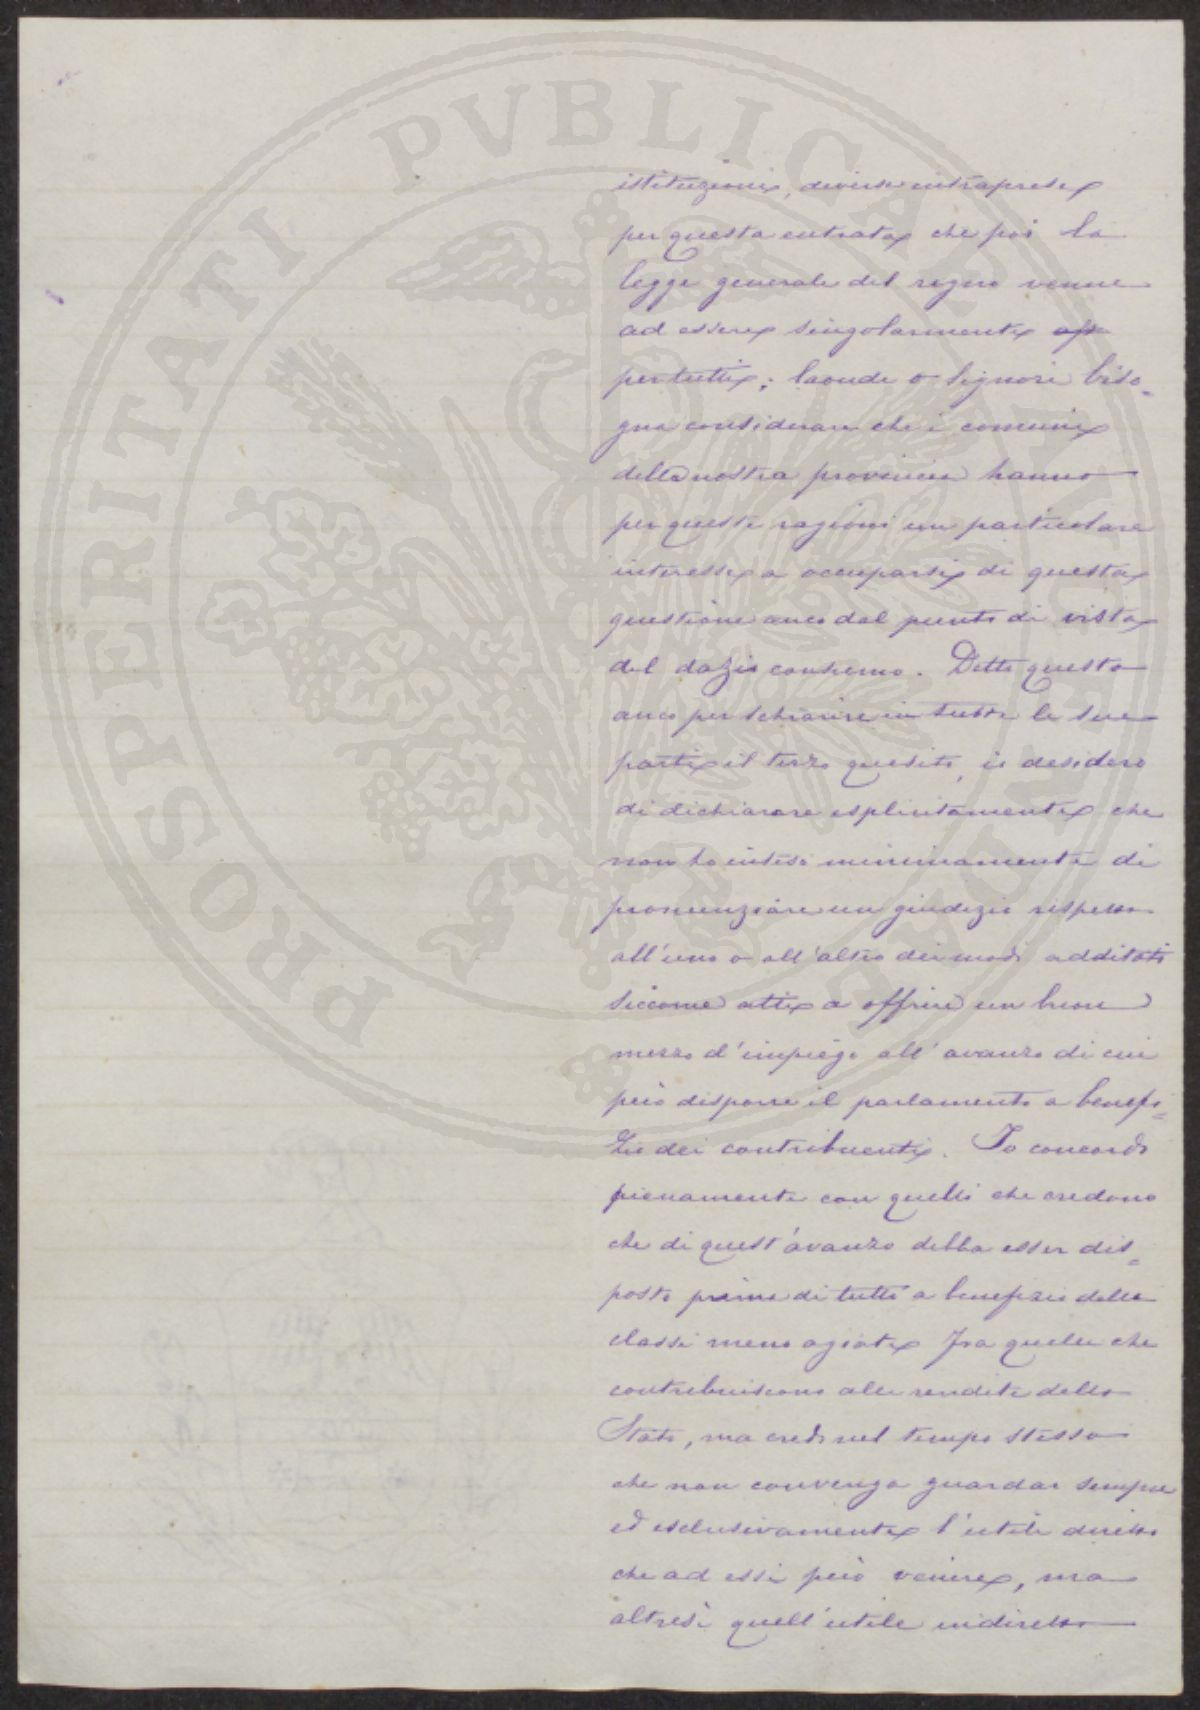 PROSPERITATI PVBLICAE AVGENDAE
istituzioni, diverse intraprese
per questa entrata che poi la
legge generale del regno venne
ad essere singolarmente
per tutti; laonde o Signori biso-
gna considerare che i comuni
della nostra provincia hanno
per queste ragioni un particolare
interesse a occuparsi di questa
questione anco dal punto di vista
del dazio consumo. Detto questo
anco per schiarire in tutte le sue
parti il terzo quesito, io desidero
di dichiarare esplicitamente che
non ho inteso minimamente di
pronunziare un giudizio rispetto
all'uno o all'altro dei modi additati
siccome atti a offrire un buon
mezzo d'impiego all'avanzo di cui
può disporre il parlamento a benefi=
zio dei contribuenti. Io concordo
pienamente con quelli che credono
che di quest'avanzo debba esser dis=
posto prima di tutto a benefizio delle
classi meno agiate fra quelle che
contribuiscono alle rendite dello
Stato, ma credo nel tempo stesso
che non convenga guardar sempre
ed esclusivamente l'utile diretto
che ad essi può venire, ma
altresì quell'utile indiretto